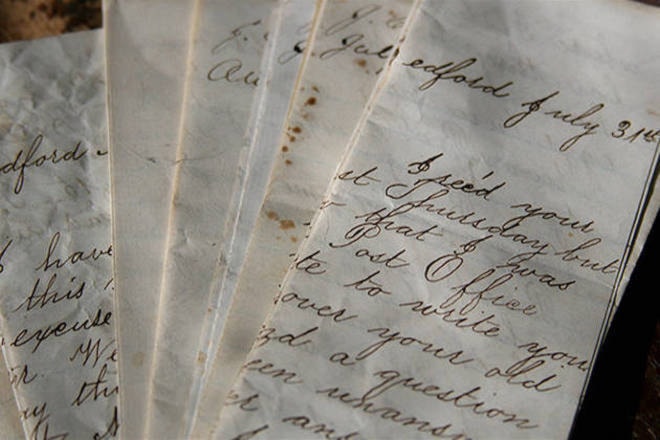 dford
I have
this
excuse
We
my
J.
Au
J.
Jul
edford July 31st
I rec'd your
st Thursday but
that I was
Post Office
te to write you
over your old
zd a question
een unansw